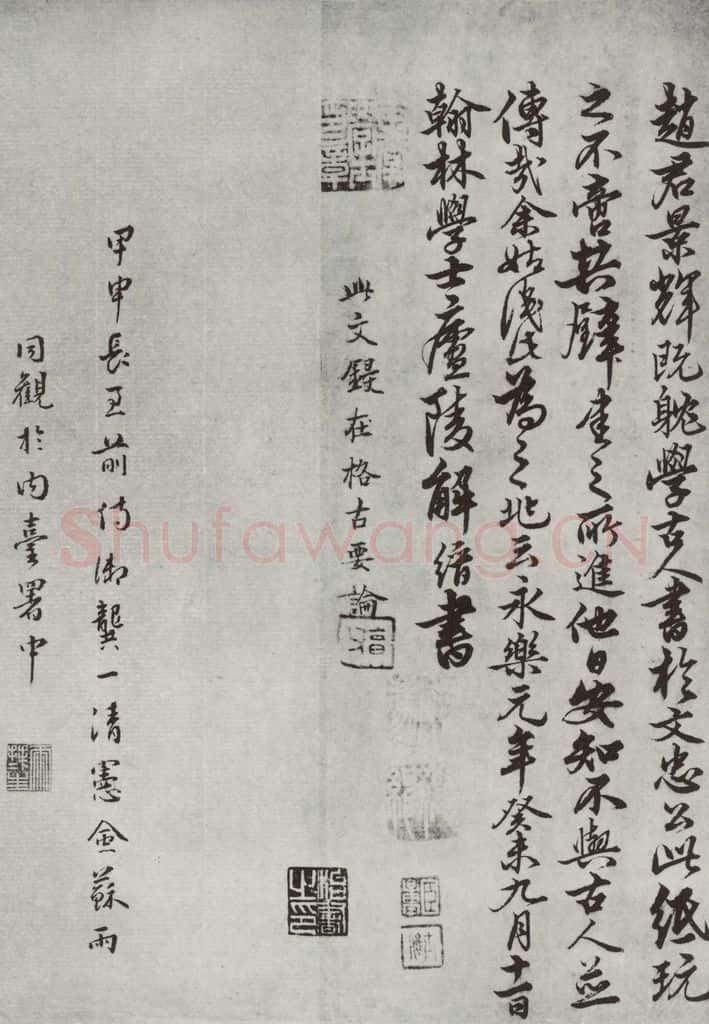 趙君景輝既耽學古人書於文忠公此紙玩
之不啻拱璧生之所進他日安知不與古人並
傳哉余姑識此為之兆云永樂元年癸未九月十一日
翰林學士廬陵解縉書
此文鋟在格古要論
甲申長至前侍御龔一清憲僉蘇雨
同觀於內臺署中
Shufawang.CN